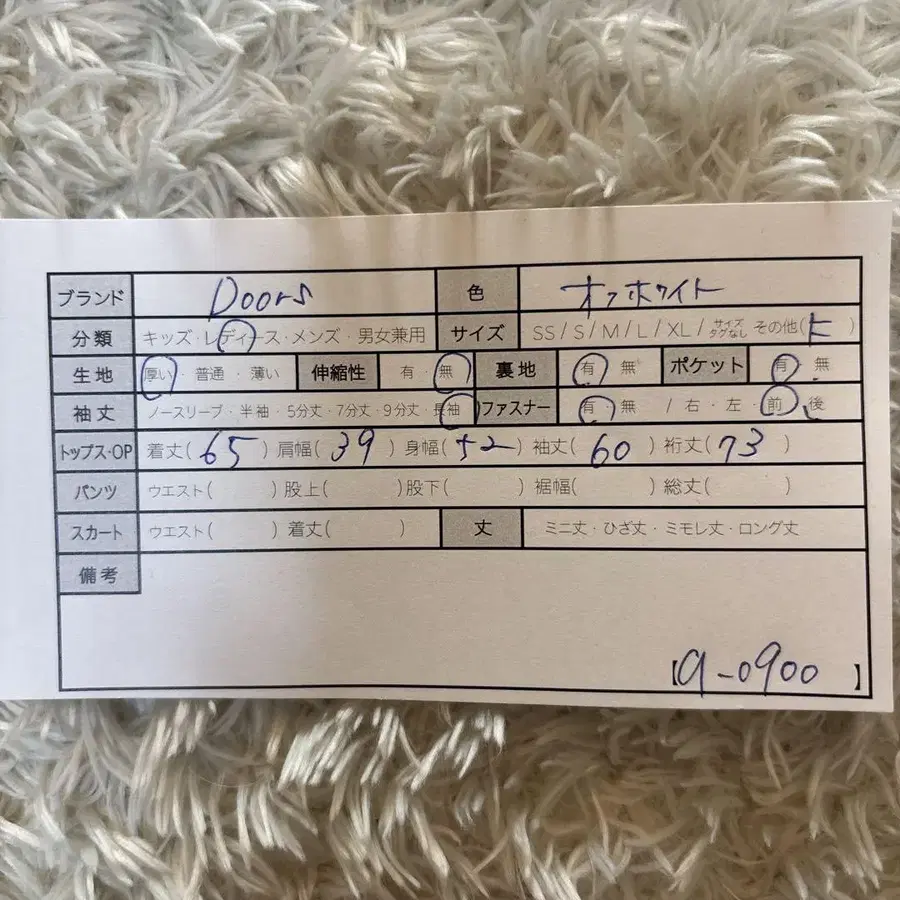 ブランド Doors 色 オフホワイト
分類 キッズ・レディース・メンズ・男女兼用 サイズ SS / S / M / L / XL / サイズタグなし その他( F )
生地 厚い・普通・薄い 伸縮性 有・無 裏地 有・無 ポケット 有・無
袖丈 ノースリーブ・半袖・5分丈・7分丈・9分丈・長袖 ファスナー 有・無 / 右・左・前・後
トップス・OP 着丈( 65 ) 肩幅( 39 ) 身幅( 52 ) 袖丈( 60 ) 裄丈( 73 )
パンツ ウエスト( ) 股上( ) 股下( ) 裾幅( ) 総丈( )
スカート ウエスト( ) 着丈( ) 丈 ミニ丈・ひざ丈・ミモレ丈・ロング丈
備考
【9-0900】